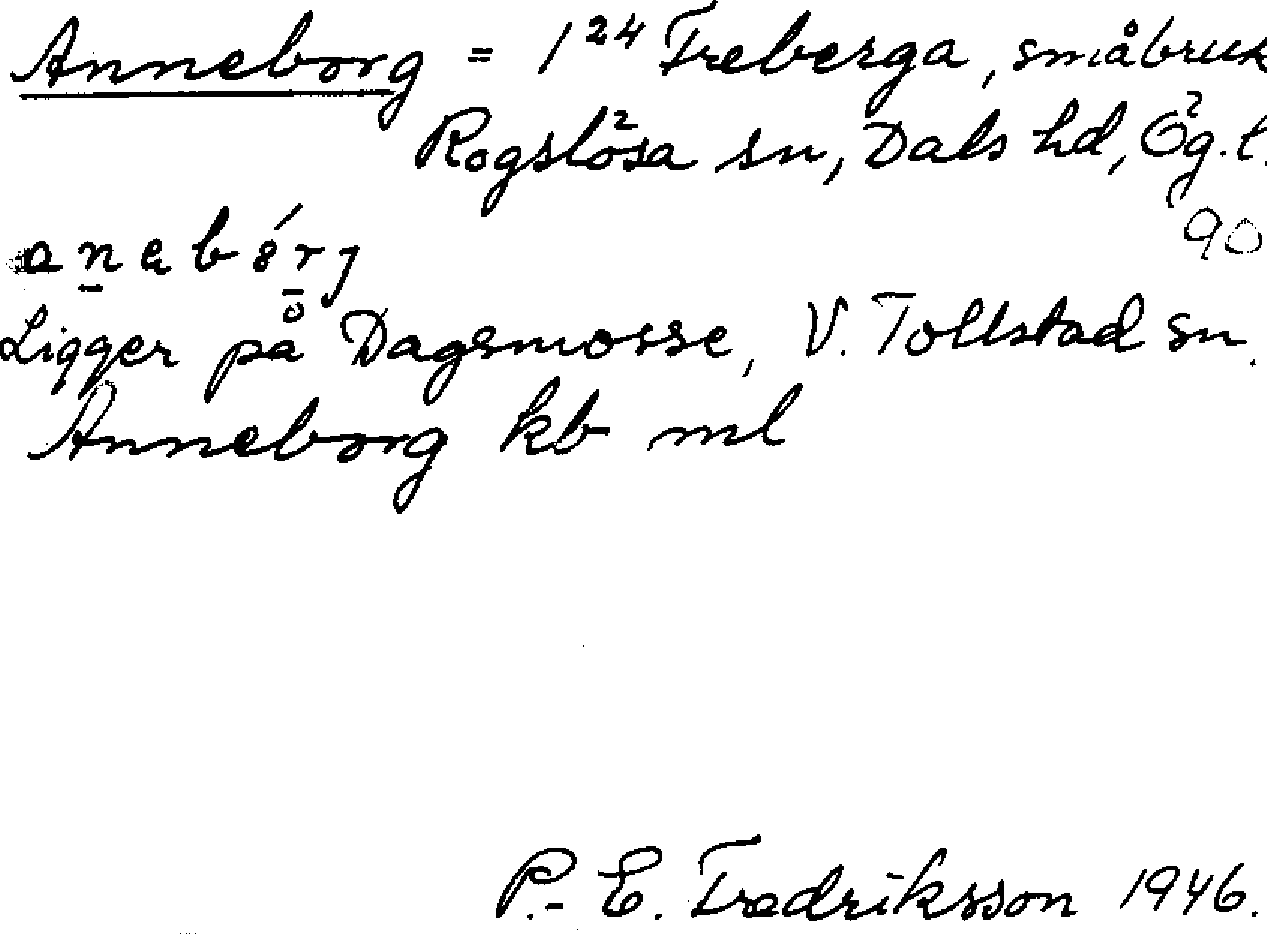 Anneborg = 1²⁴ Freberga, småbruk
Rogslösa sn, Dals hd, Ög. l.
90
Ligger på Dagsmosse, V. Tollstad sn.
Anneborg kb ml
P.-E. Fredriksson 1946.